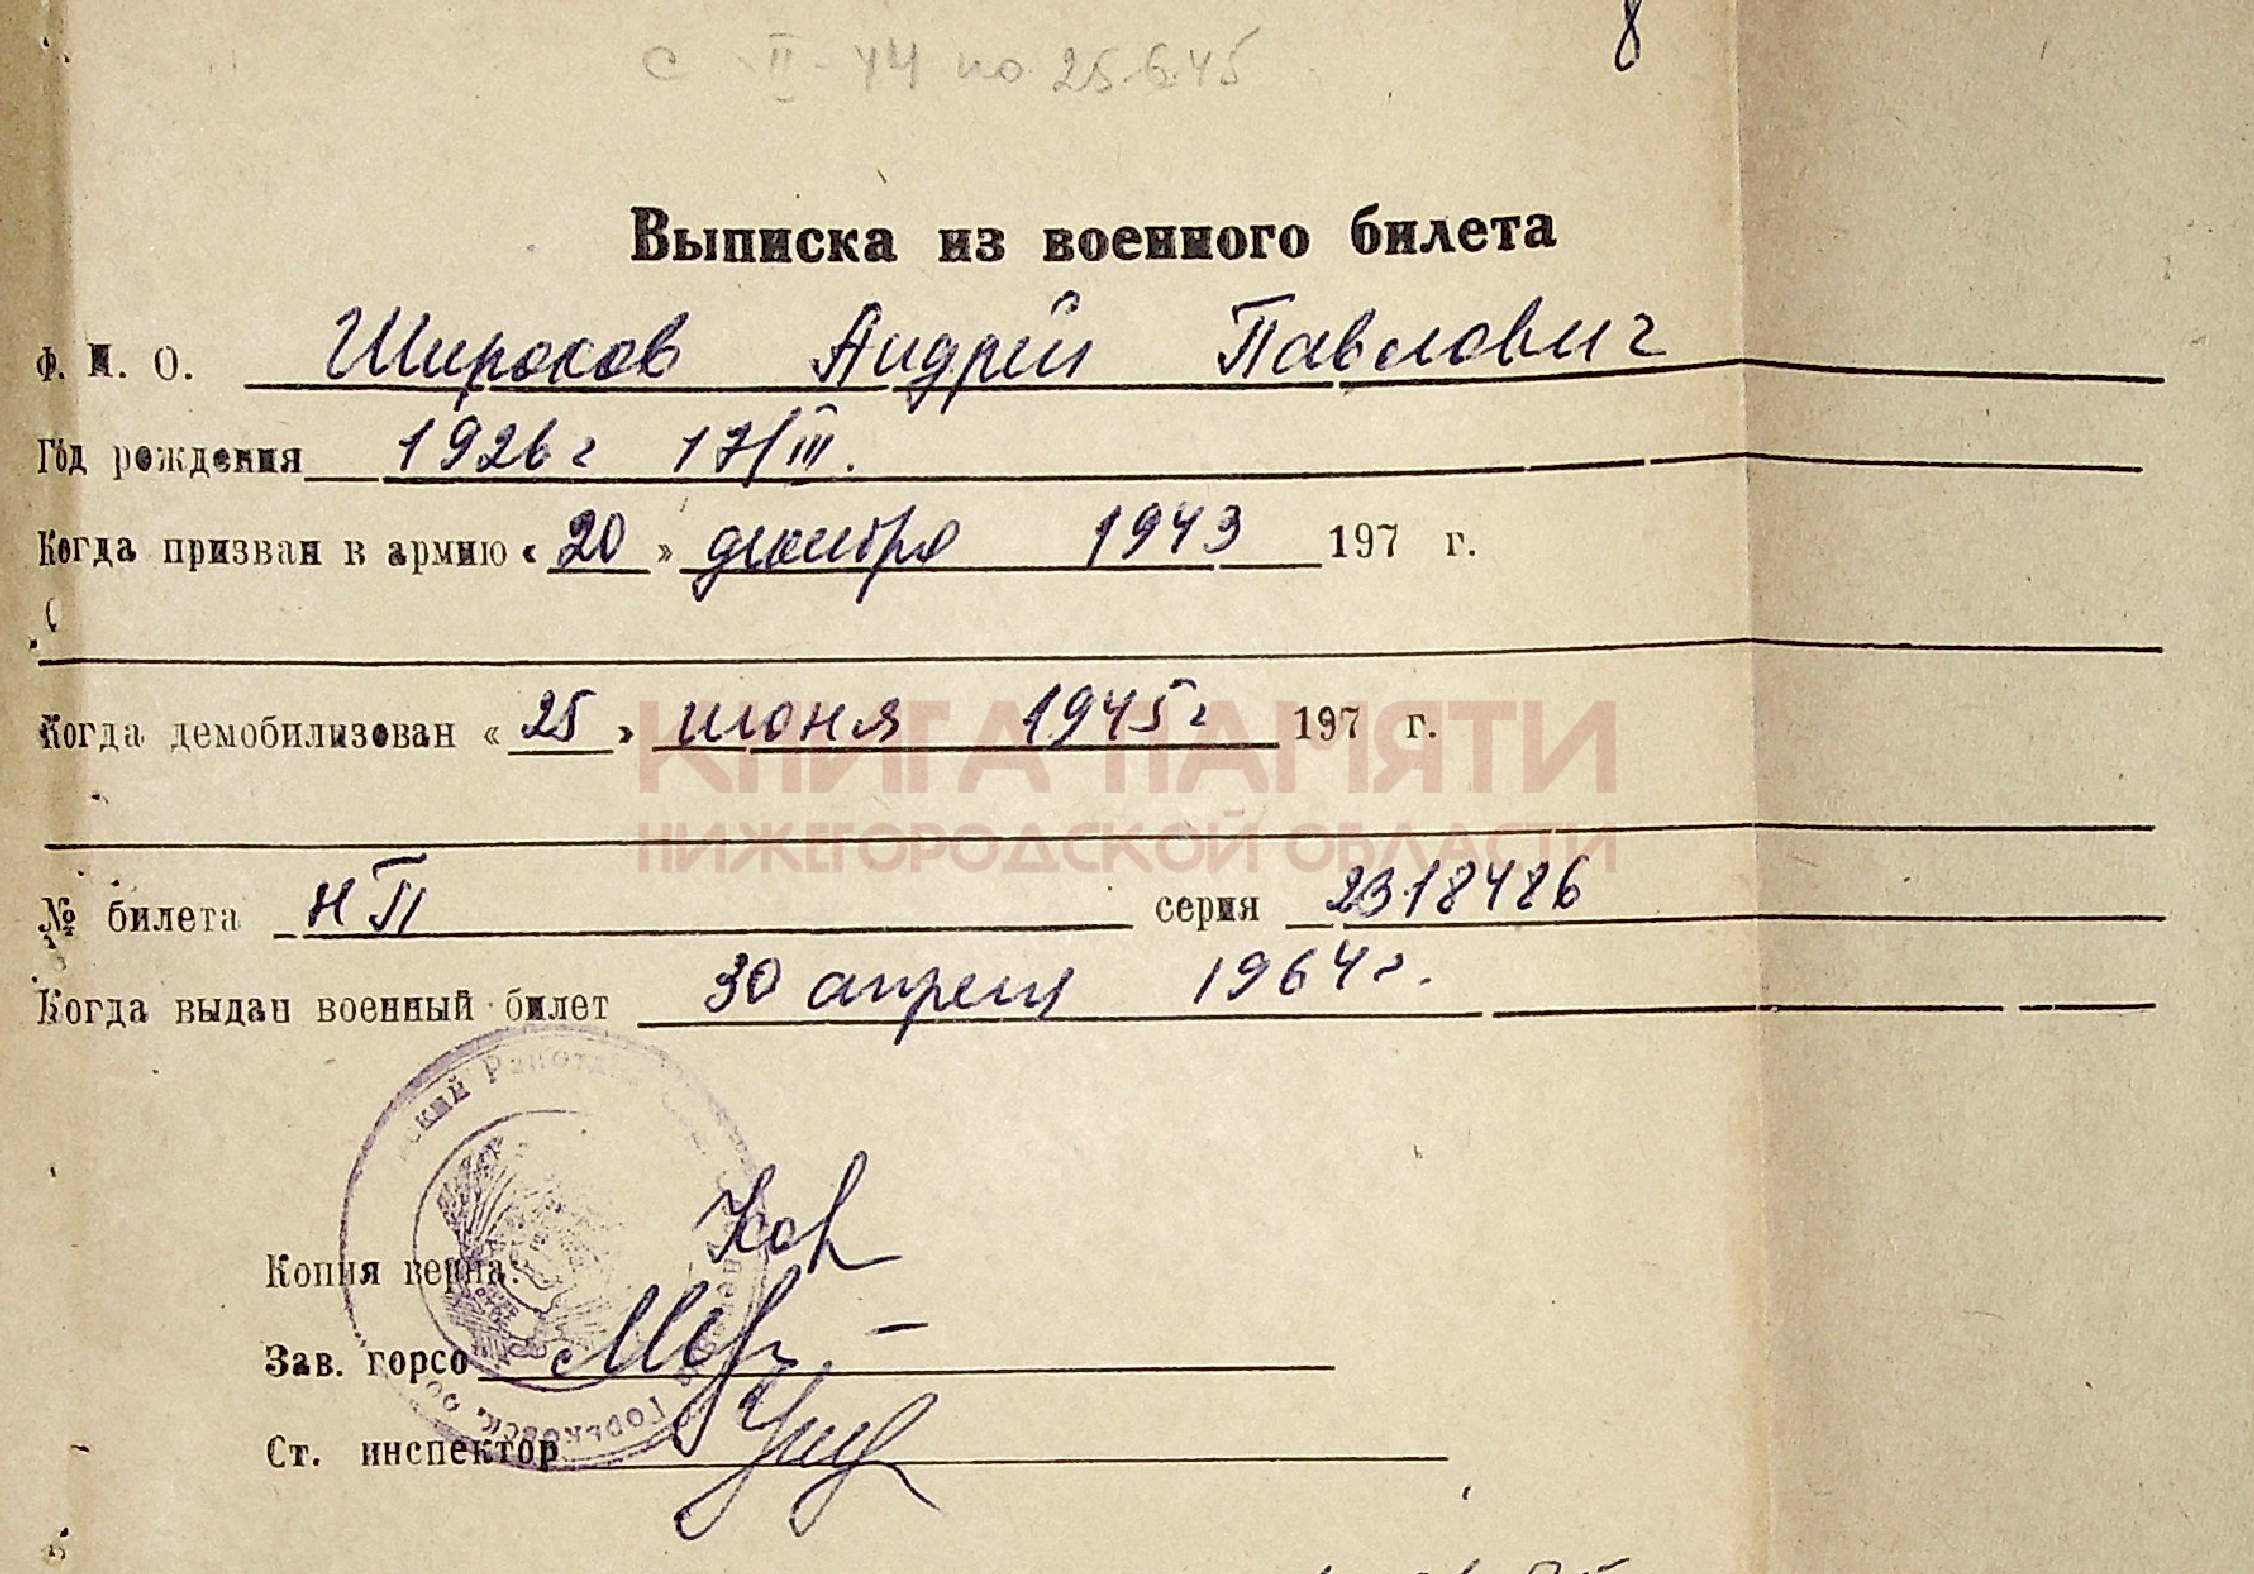 8
с II-44 по 25.6.45
Выписка из военного билета
Ф. И. О. Широков Андрей Павлович
Год рождения 1926 г 17/III.
Когда призван в армию «20» декабря 1943 197 г.
Когда демобилизован «25» июня 1945 г 197 г.
КНИГА ПАМЯТИ
НИЖЕГОРОДСКОЙ ОБЛАСТИ
№ билета НП серия 2318486
Когда выдан военный билет 30 апреля 1964 г.
Копия верна:
Зав. горсо
Ст. инспектор